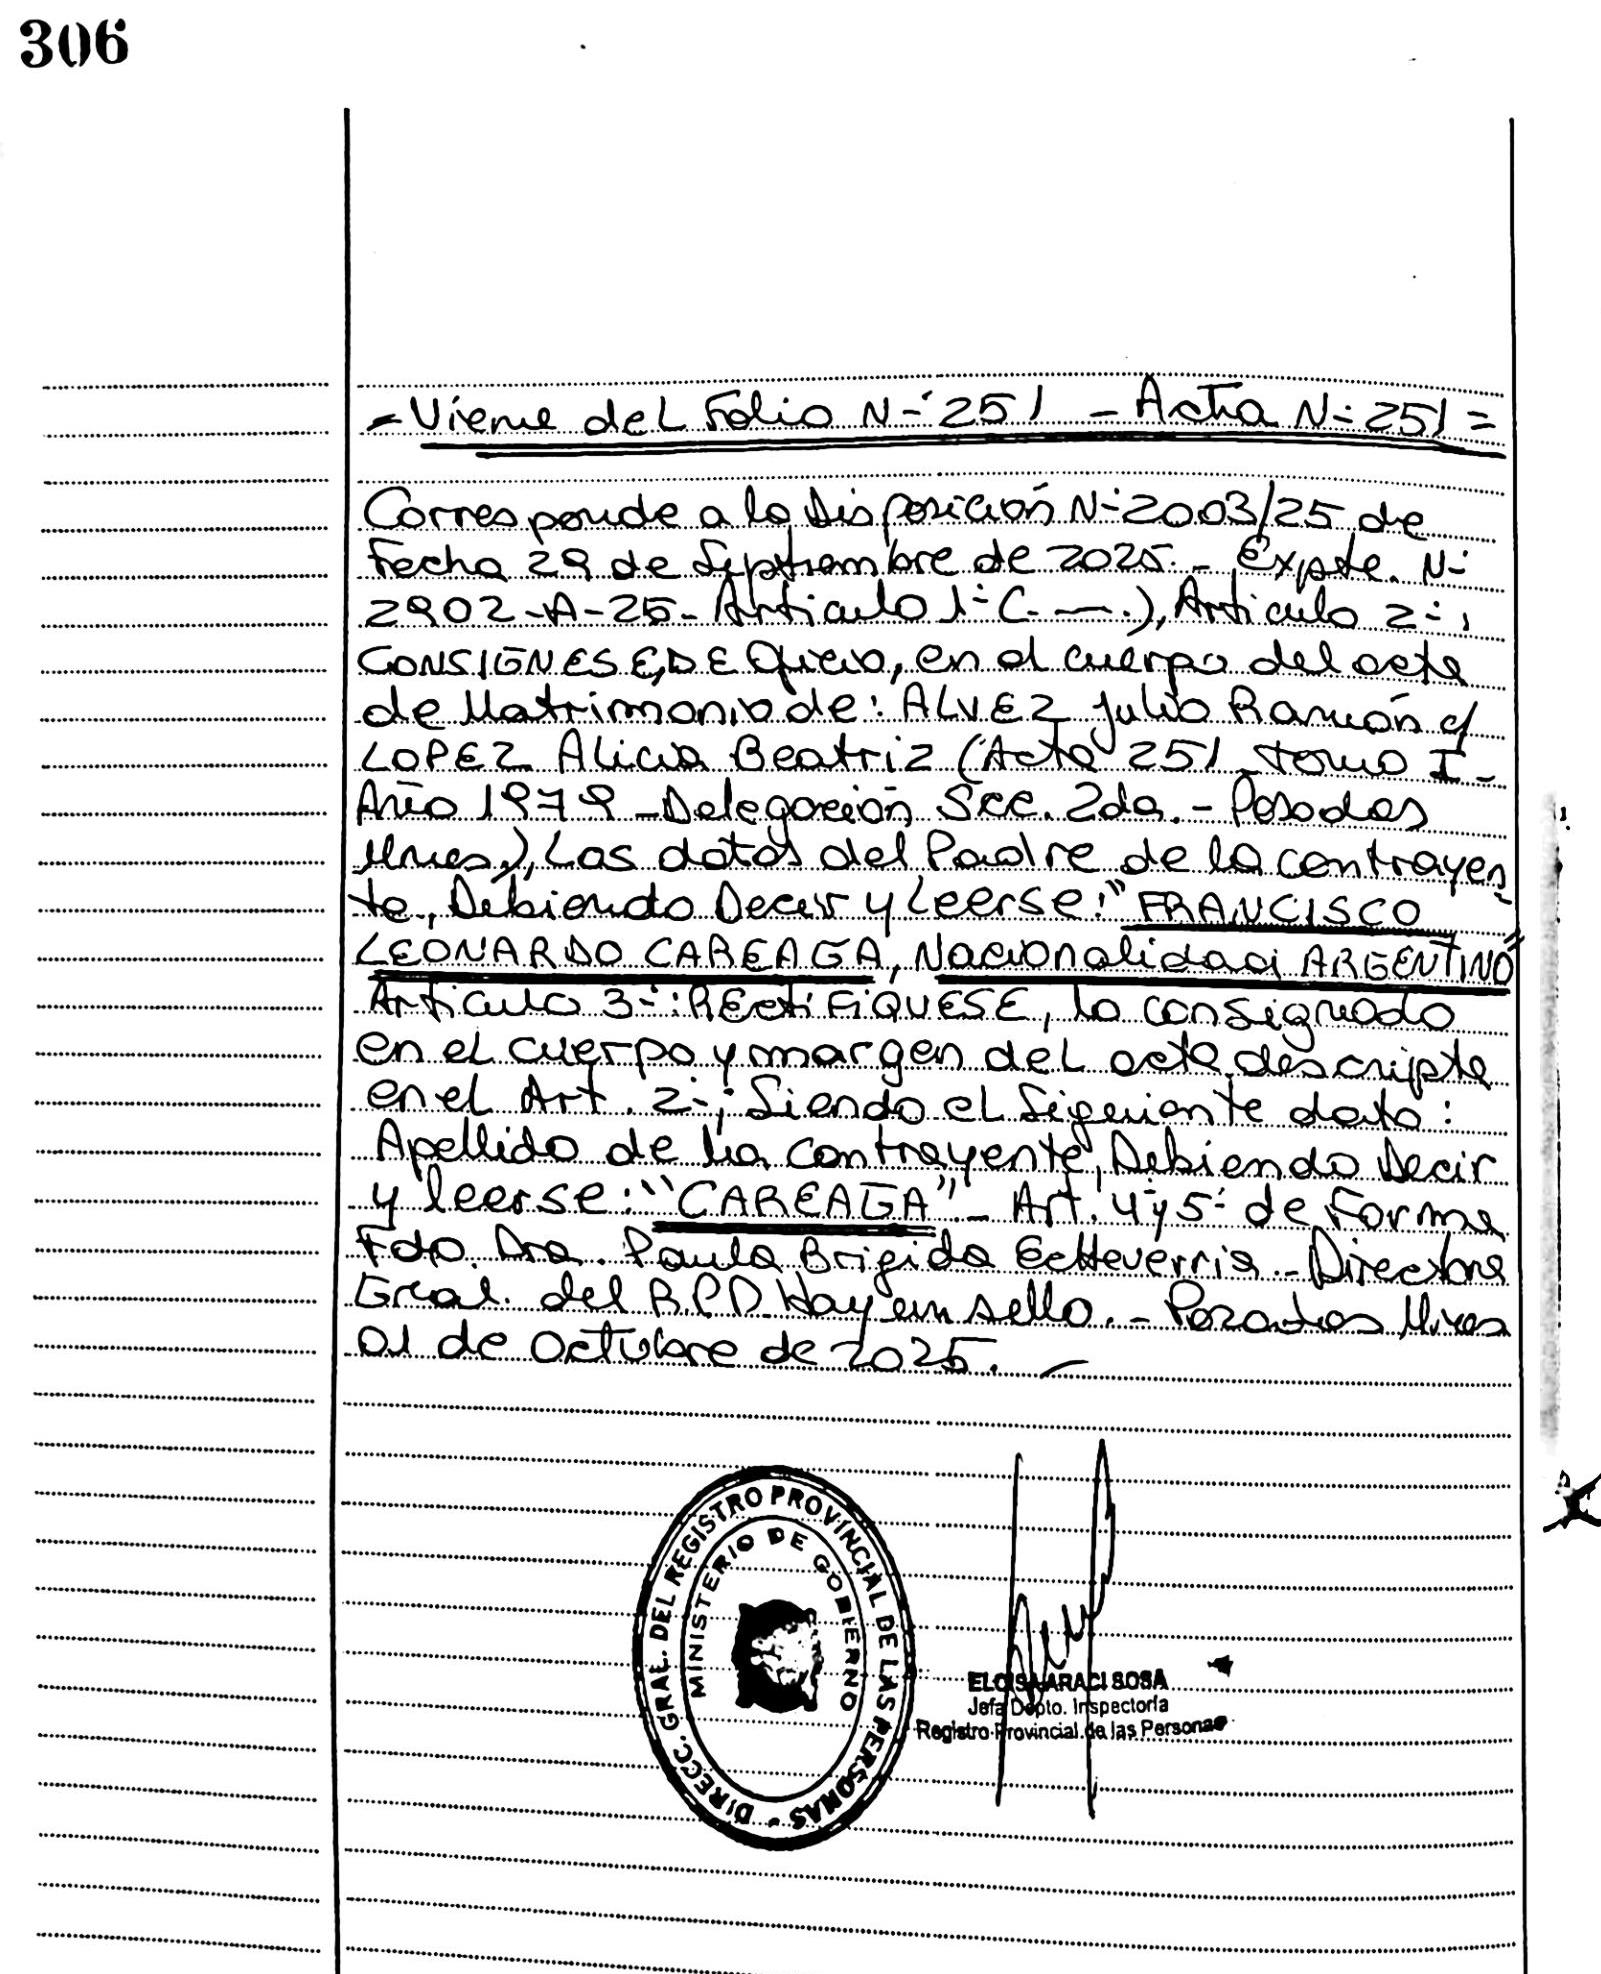 306
- Viene del Folio N-° 251 - Acta N-° 251 =
Corresponde a la Disposición N-° 2003/25 de
Fecha 29 de Septiembre de 2025.- Expte. N-°
2902-A-25- Artículo 1-° (- —.), Artículo 2-°,
CONSIGNESE, DE Oficio, en el cuerpo del acta
de Matrimonio de: ALVEZ Julio Ramón c/
LOPEZ Alicia Beatriz (Acta 251 - tomo I -
Año 1979 - Delegación Scc. 2da. - Posadas
Mnes.), Los datos del Padre de la contrayen
te, Debiendo Decir y Leerse: "FRANCISCO
LEONARDO CAREAGA, Nacionalidad ARGENTINO"
Artículo 3-°: REctiFIQUESE, lo consignado
en el cuerpo y margen del acta descripta
en el Art. 2-°; Siendo el Siguiente dato:
Apellido de la contrayente, Debiendo Decir
y leerse: "CAREAGA" - Art. 4° y 5-° de Forma
Fdo. Dra. Paula Brigida Echeverria - Directora
Gral. del R.P.P. Hay un sello. - Posadas Mnes
01 de Octubre de 2025. -
DIRECC. GRAL. DEL REGISTRO PROVINCIAL DE LAS PERSONAS -
MINISTERIO DE GOBIERNO
ELOISA ARACI SOSA
Jefa Dpto. Inspectoría
Registro Provincial de las Personas